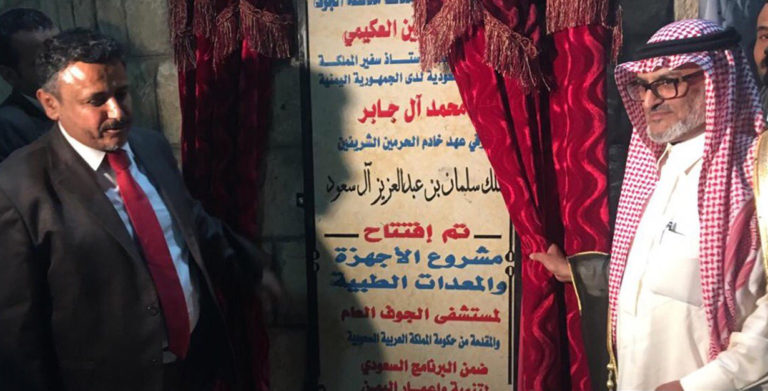 ين العكيمي
ستاذ سفير المملكة
ودية لدى الجمهورية اليمنية
محمد آل جابر
في عهد خادم الحرمين الشريفين
لك سلمان بن عبدالعزيز آل سعود
تم إفتتاح
مشروع الأجهزة
والمعدات الطبية
لمستشفى الجوف العام
والمقدمة من حكومة المملكة العربية السعودية
ضمن البرنامج السعودي
لتنمية وإعمار اليمن